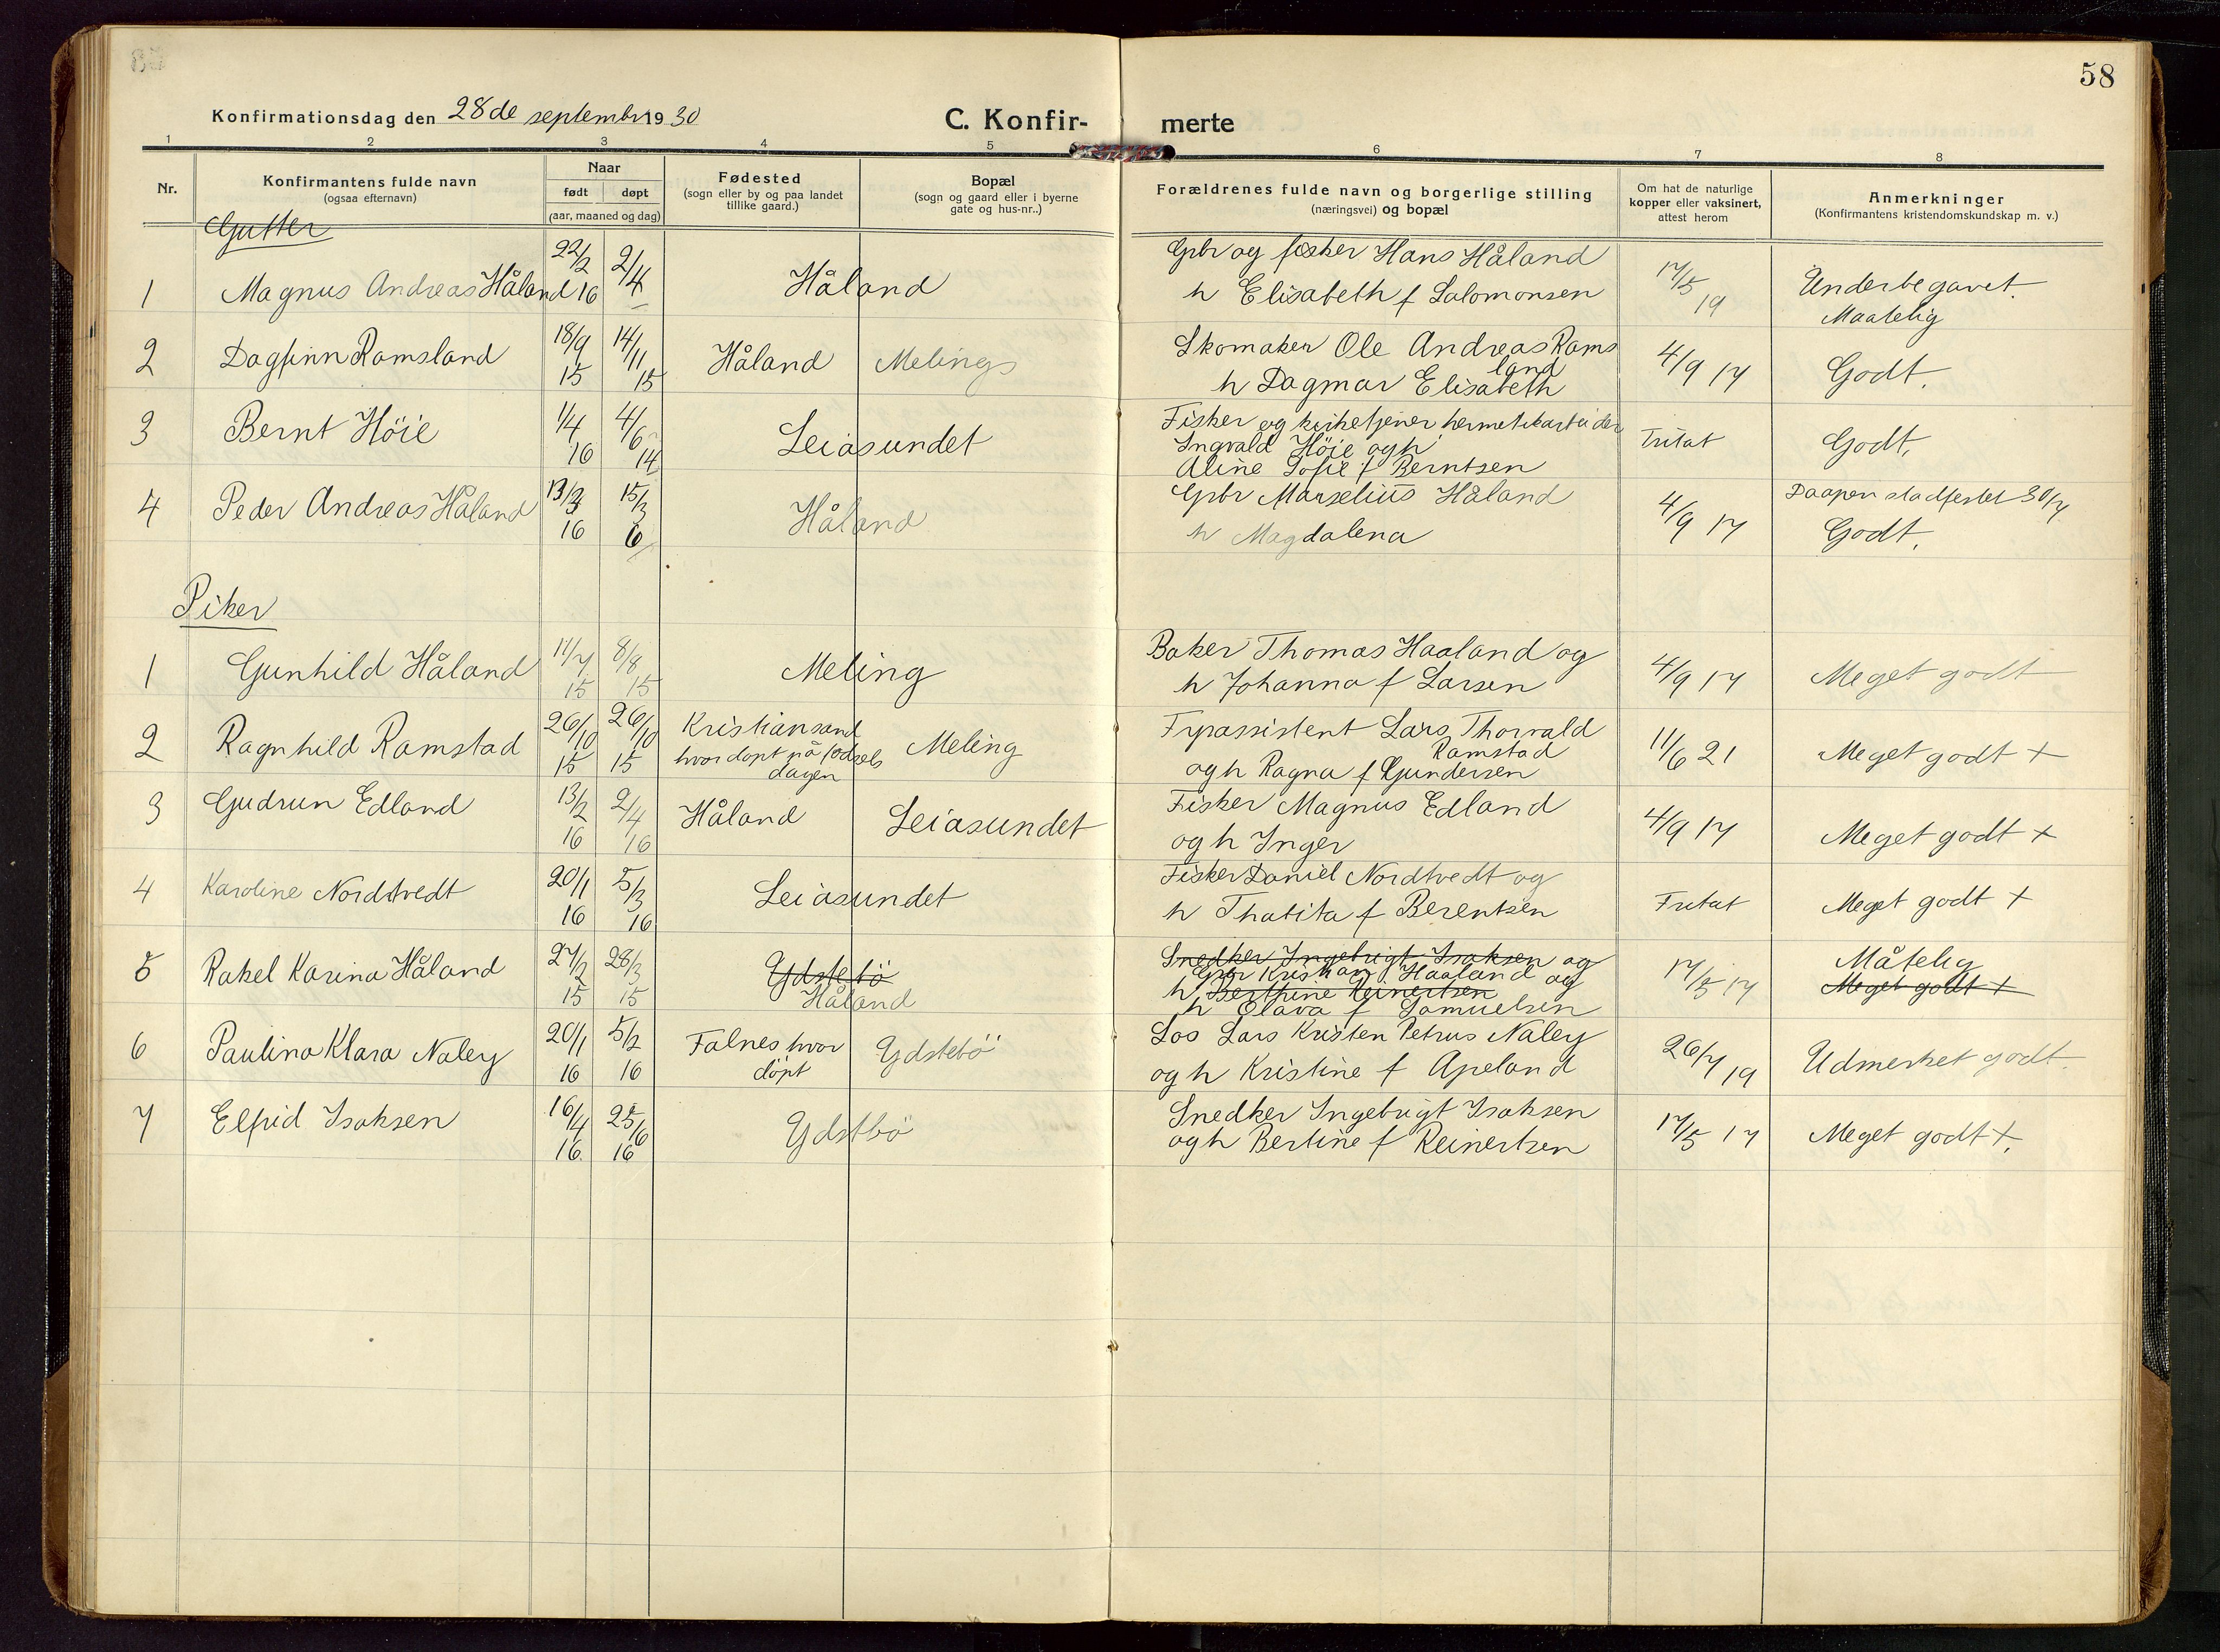 58
Konfirmationsdag den 28de septembr 1930
C. Konfir- merte
1 2 3 4 5 6 7 8
Nr.
Konfirmantens fulde navn
(ogsaa efternavn)
Naar
født døpt
(aar, maaned og dag)
Fødested
(sogn eller by og paa landet
tillike gaard.)
Bopæl
(sogn og gaard eller i byerne
gate og hus-nr..)
Forældrenes fulde navn og borgerlige stilling
(næringsvei) og bopæl
Om hat de naturlige
kopper eller vaksinert,
attest herom
Anmerkninger
(Konfirmantens kristendomskundskap m. v.)
Gutter
1 Magnus Andreas Håland 22/2 16 2/4 Håland
Gbr og fisker Hans Håland
h Elisabeth f Salomonsen
17/5 19
Underbegavet.
Maatelig
2 Dagfinn Ramsland 18/9 15 14/11 15 Håland Melings
Skomaker Ole Andreas Rams
land
h Dagmar Elisabeth
4/9 17
Godt.
3 Bernt Höie 1/4 16 4/6 14 Leiasundet
Fisker og kirketjener hermetikarbeider
Ingvald Höie og h
Aline Sofie f Berntsen
Fritat
Godt.
4 Peder Andreas Håland 13/2 16 15/3 6 Håland
Gbr Marselius Håland
h Magdalena
4/9 17
Daapen stadfestet 30/7
Godt.
Piker
1 Gunhild Håland 11/7 15 8/8 15 Meling
Baker Thomas Haaland og
h Johanna f Larsen
4/9 17
Meget godt
2 Ragnhild Ramstad 26/10 15 26/10 15
Kristiansand
hvor döpt på födsels
dagen
Meling
Fyrassistent Lars Thorvald
Ramstad
og h Ragna f Gundersen
11/6 21
Meget godt +
3 Gudrun Edland 13/2 16 2/4 16 Håland Leiasundet
Fisker Magnus Edland
og h Inger
4/9 17
Meget godt +
4 Karoline Nordtvedt 20/1 16 5/3 16 Leiasundet
Fisker Daniel Nordtvedt og
h Thabita f Berentsen
Fritat
Meget godt +
5 Rakel Karina Håland 27/2 15 28/3 15
Ydstebö
Håland
Snedker Ingebrigt Isaksen og
Gbr Kristian Haaland og
h Berthine Reinertsen
h Olava f Samuelsen
17/5 17
Måtelig
Meget godt +
6 Paulina Klara Naley 20/1 16 5/2 16
Falnes hvor
döpt
Ydstebö
Los Lars Kristen Petrus Naley
og h Kristine f Apeland
26/7 19
Udmerket godt.
7 Elfrid Isaksen 16/4 16 25/6 16 Ydstbö
Snedker Ingebrigt Isaksen
og h Bertine f Reinertsen
17/5 17
Meget godt +.